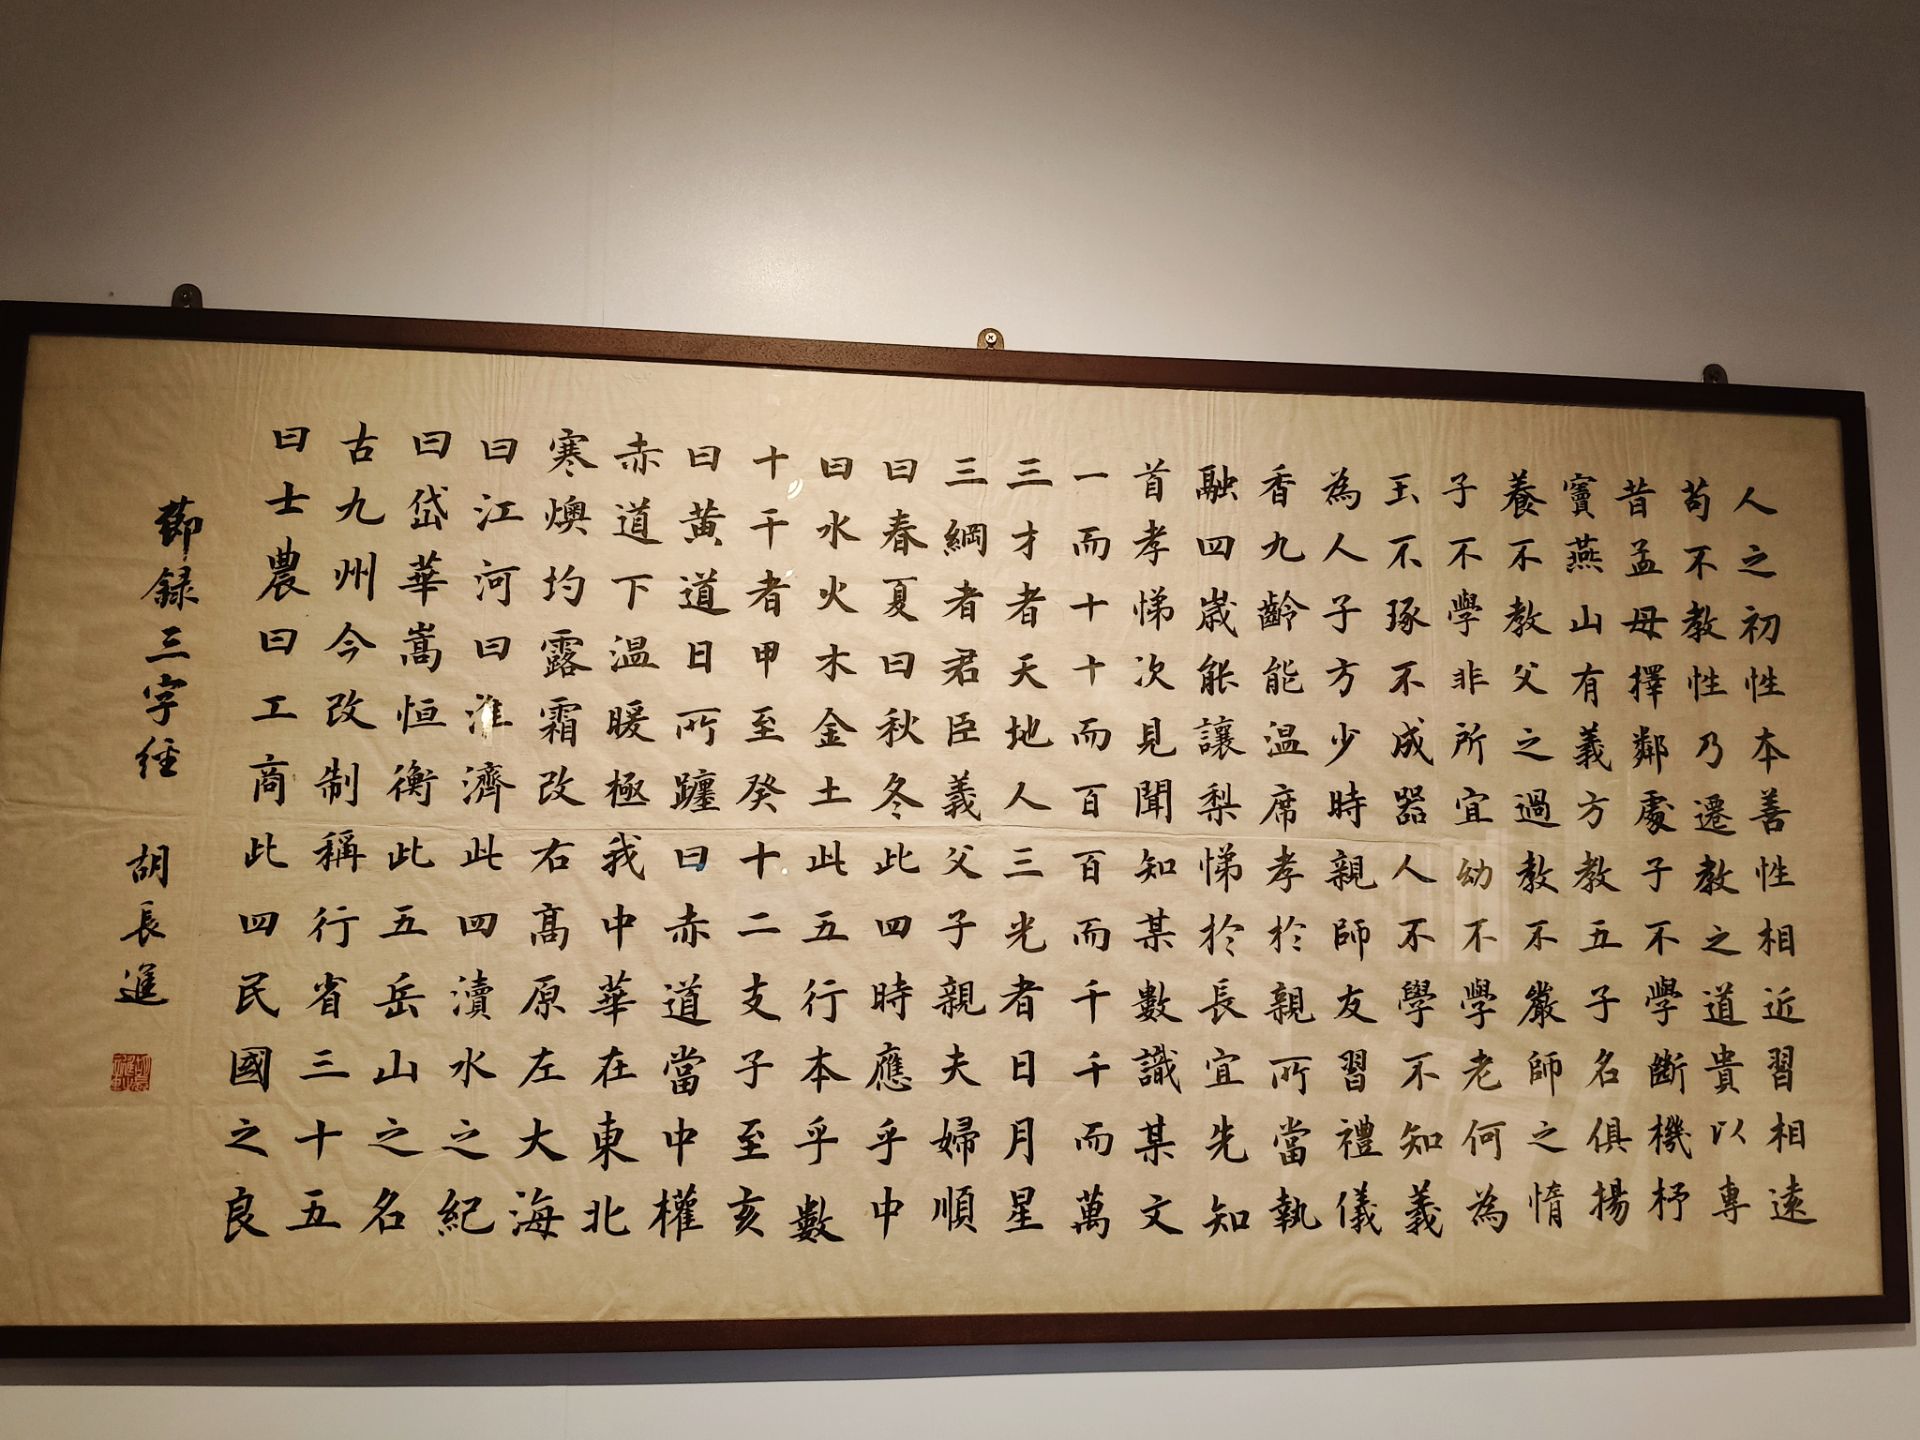 人之初性本善性相近習相遠
苟不教性乃遷教之道貴以專
昔孟母擇鄰處子不學斷機杼
竇燕山有義方教五子名俱揚
養不教父之過教不嚴師之惰
子不學非所宜幼不學老何為
玉不琢不成器人不學不知義
為人子方少時親師友習禮儀
香九齡能温席孝於親所當執
融四歲能讓梨悌於長宜先知
首孝悌次見聞知某數識某文
一而十十而百百而千千而萬
三才者天地人三光者日月星
三綱者君臣義父子親夫婦順
曰春夏曰秋冬此四時應乎中
曰水火木金土此五行本乎數
十干者甲至癸十二支子至亥
曰黄道日所躔曰赤道當中權
赤道下温暖極我中華在東北
寒燠均露霜改右高原左大海
曰江河曰淮濟此四瀆水之紀
曰岱華嵩恒衡此五岳山之名
古九州今改制稱行省三十五
曰士農曰工商此四民國之良
節録三字經 胡長進